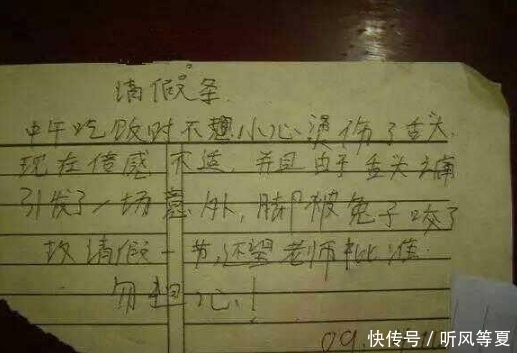 请假条
中午吃饭时不小心烫伤了舌头
现在倍感不适，并且由于舌头之痛
引发了一场意外，脚被兔子咬了
故请假一节，还望老师批准
勿担心！
09.
快传号／听风等夏